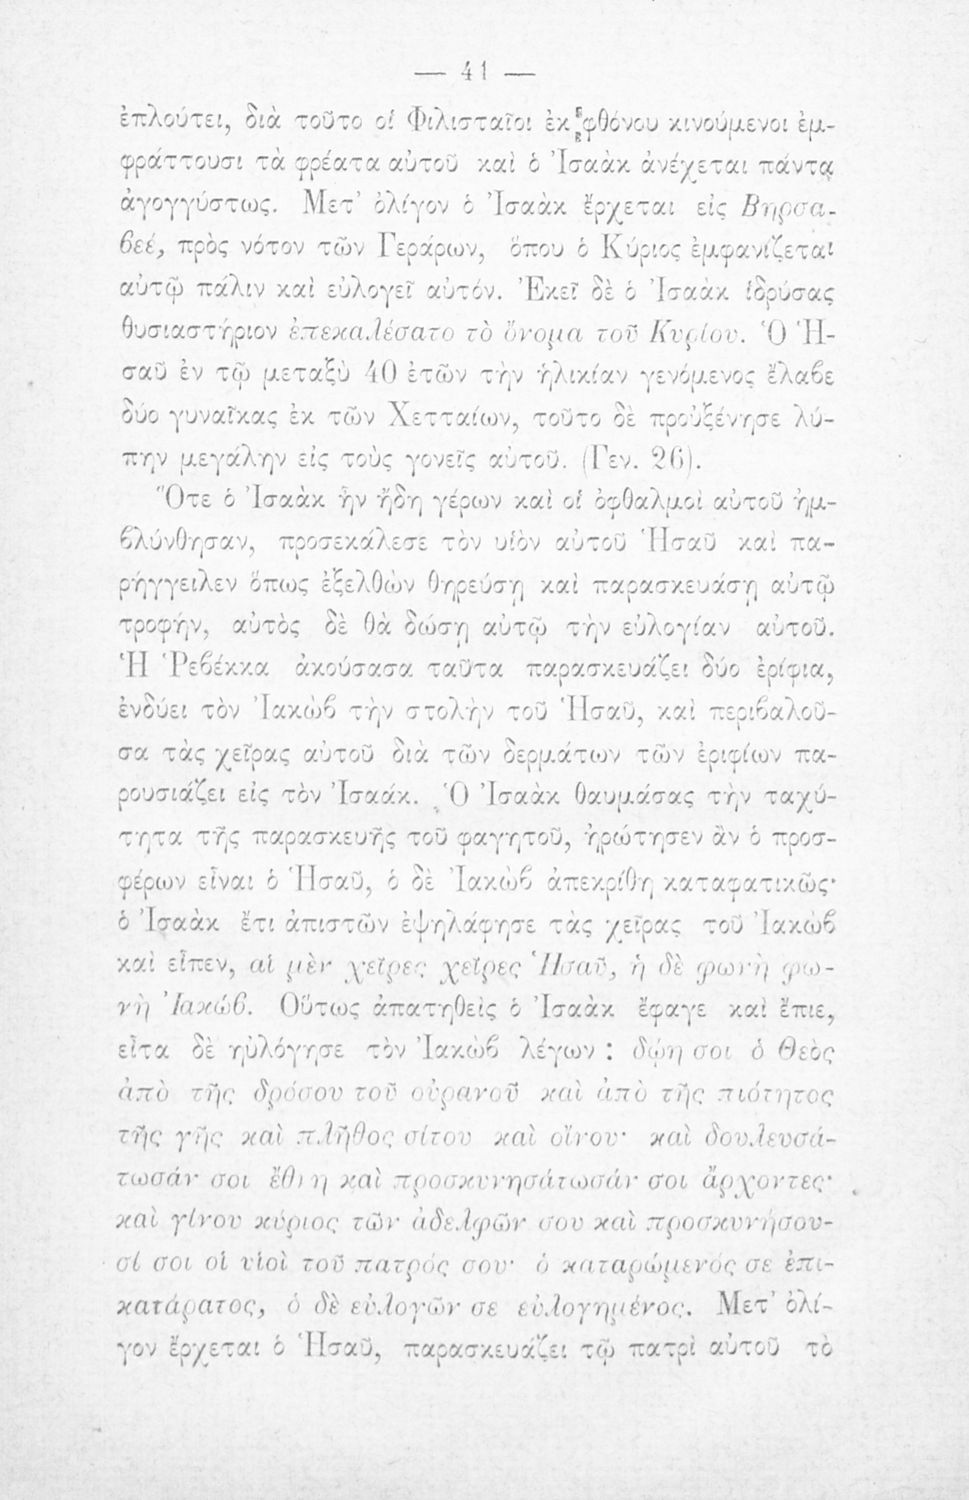 — 41 —
ἐπλούτει, διὰ τοῦτο οἱ Φιλισταῖοι ἐκ φθόνου κινούμενοι ἐμ-
φράττουσι τὰ φρέατα αὐτοῦ καὶ ὁ Ἰσαὰκ ἀνέχεται πάντα
ἀγογγύστως. Μετ’ ὀλίγον ὁ Ἰσαὰκ ἔρχεται εἰς Βηρσα-
βεέ, πρὸς νότον τῶν Γεράρων, ὅπου ὁ Κύριος ἐμφανίζεται
αὐτῷ πάλιν καὶ εὐλογεῖ αὐτόν. Ἐκεῖ δὲ ὁ Ἰσαὰκ ἱδρύσας
θυσιαστήριον ἐπεκαλέσατο τὸ ὄνομα τοῦ Κυρίου. Ὁ Ἡ-
σαῦ ἐν τῷ μεταξὺ 40 ἐτῶν τὴν ἡλικίαν γενόμενος ἔλαβε
δύο γυναῖκας ἐκ τῶν Χετταίων, τοῦτο δὲ προὐξένησε λύ-
πην μεγάλην εἰς τοὺς γονεῖς αὐτοῦ. (Γεν. 26).
Ὅτε ὁ Ἰσαὰκ ἦν ἤδη γέρων καὶ οἱ ὀφθαλμοὶ αὐτοῦ ἠμ-
βλύνθησαν, προσεκάλεσε τὸν υἱὸν αὐτοῦ Ἡσαῦ καὶ πα-
ρήγγειλεν ὅπως ἐξελθὼν θηρεύσῃ καὶ παρασκευάσῃ αὐτῷ
τροφήν, αὐτὸς δὲ θὰ δώσῃ αὐτῷ τὴν εὐλογίαν αὐτοῦ.
Ἡ Ῥεβέκκα ἀκούσασα ταῦτα παρασκευάζει δύο ἐρίφια,
ἐνδύει τὸν Ἰακὼβ τὴν στολὴν τοῦ Ἡσαῦ, καὶ περιβαλοῦ-
σα τὰς χεῖρας αὐτοῦ διὰ τῶν δερμάτων τῶν ἐριφίων πα-
ρουσιάζει εἰς τὸν Ἰσαάκ. Ὁ Ἰσαὰκ θαυμάσας τὴν ταχύ-
τητα τῆς παρασκευῆς τοῦ φαγητοῦ, ἠρώτησεν ἂν ὁ προσ-
φέρων εἶναι ὁ Ἡσαῦ, ὁ δὲ Ἰακὼβ ἀπεκρίθη καταφατικῶς·
ὁ Ἰσαὰκ ἔτι ἀπιστῶν ἐψηλάφησε τὰς χεῖρας τοῦ Ἰακὼβ
καὶ εἶπεν, αἱ μὲν χεῖρες χεῖρες Ἡσαῦ, ἡ δὲ φωνὴ φω-
νὴ Ἰακώβ. Οὕτως ἀπατηθεὶς ὁ Ἰσαὰκ ἔφαγε καὶ ἔπιε,
εἶτα δὲ ηὐλόγησε τὸν Ἰακὼβ λέγων : δῴη σοι ὁ Θεὸς
ἀπὸ τῆς δρόσου τοῦ οὐρανοῦ καὶ ἀπὸ τῆς πιότητος
τῆς γῆς καὶ πλῆθος σίτου καὶ οἴνου· καὶ δουλευσά-
τωσάν σοι ἔθνη καὶ προσκυνησάτωσάν σοι ἄρχοντες·
καὶ γίνου κύριος τῶν ἀδελφῶν σου καὶ προσκυνήσου-
σί σοι οἱ υἱοὶ τοῦ πατρός σου· ὁ καταρώμενός σε ἐπι-
κατάρατος, ὁ δὲ εὐλογῶν σε εὐλογημένος. Μετ’ ὀλί-
γον ἔρχεται ὁ Ἡσαῦ, παρασκευάζει τῷ πατρὶ αὐτοῦ τὸ